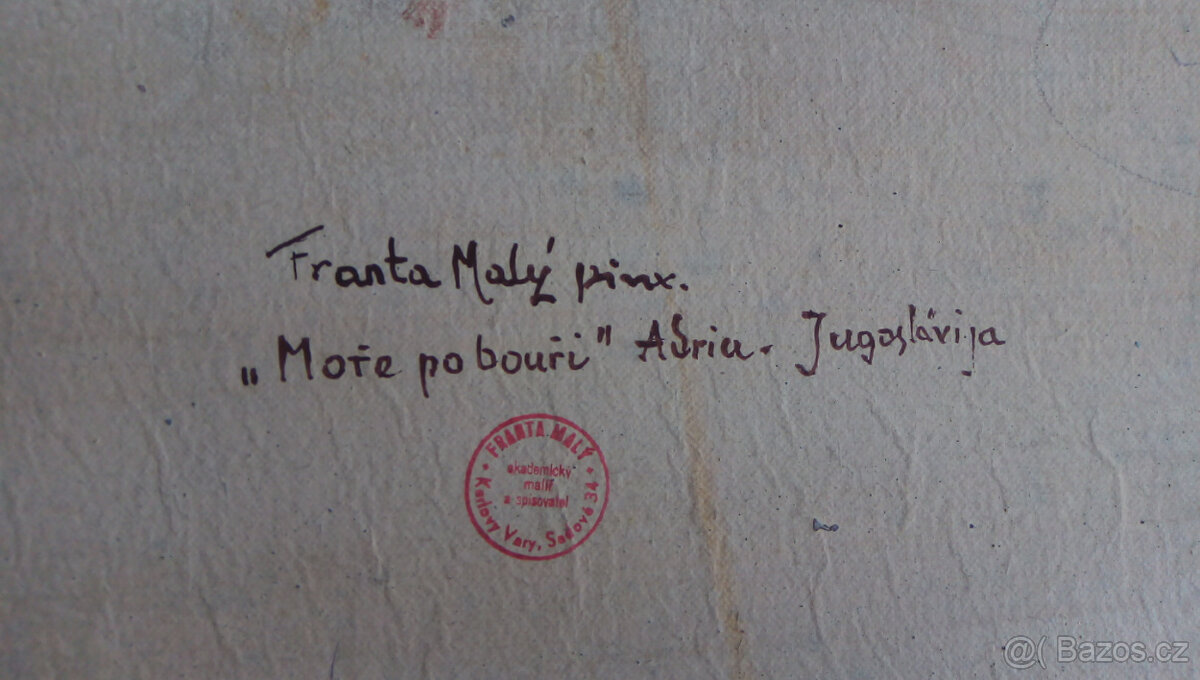 Franta Malý pinx.
„Moře po bouři" Adria. Jugoslávija
FRANTA MALÝ
akademický
malíř
a spisovatel
Karlovy Vary, Sadová 34
@( Bazos.cz